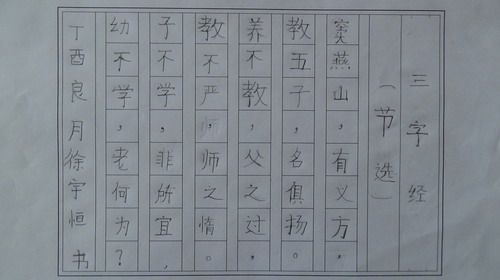 三字经
（节选）
窦燕山，有义方，
教五子，名俱扬。
养不教，父之过，
教不严，师之惰。
子不学，非所宜，
幼不学，老何为？
丁酉良月徐宇恒书